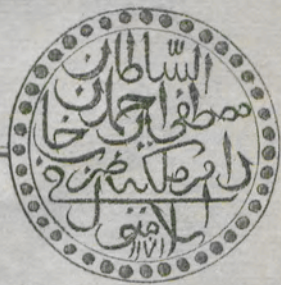 السّلطان
مصطفى بن احمد
خان
دام ملكه ضرب في
اسلامبول